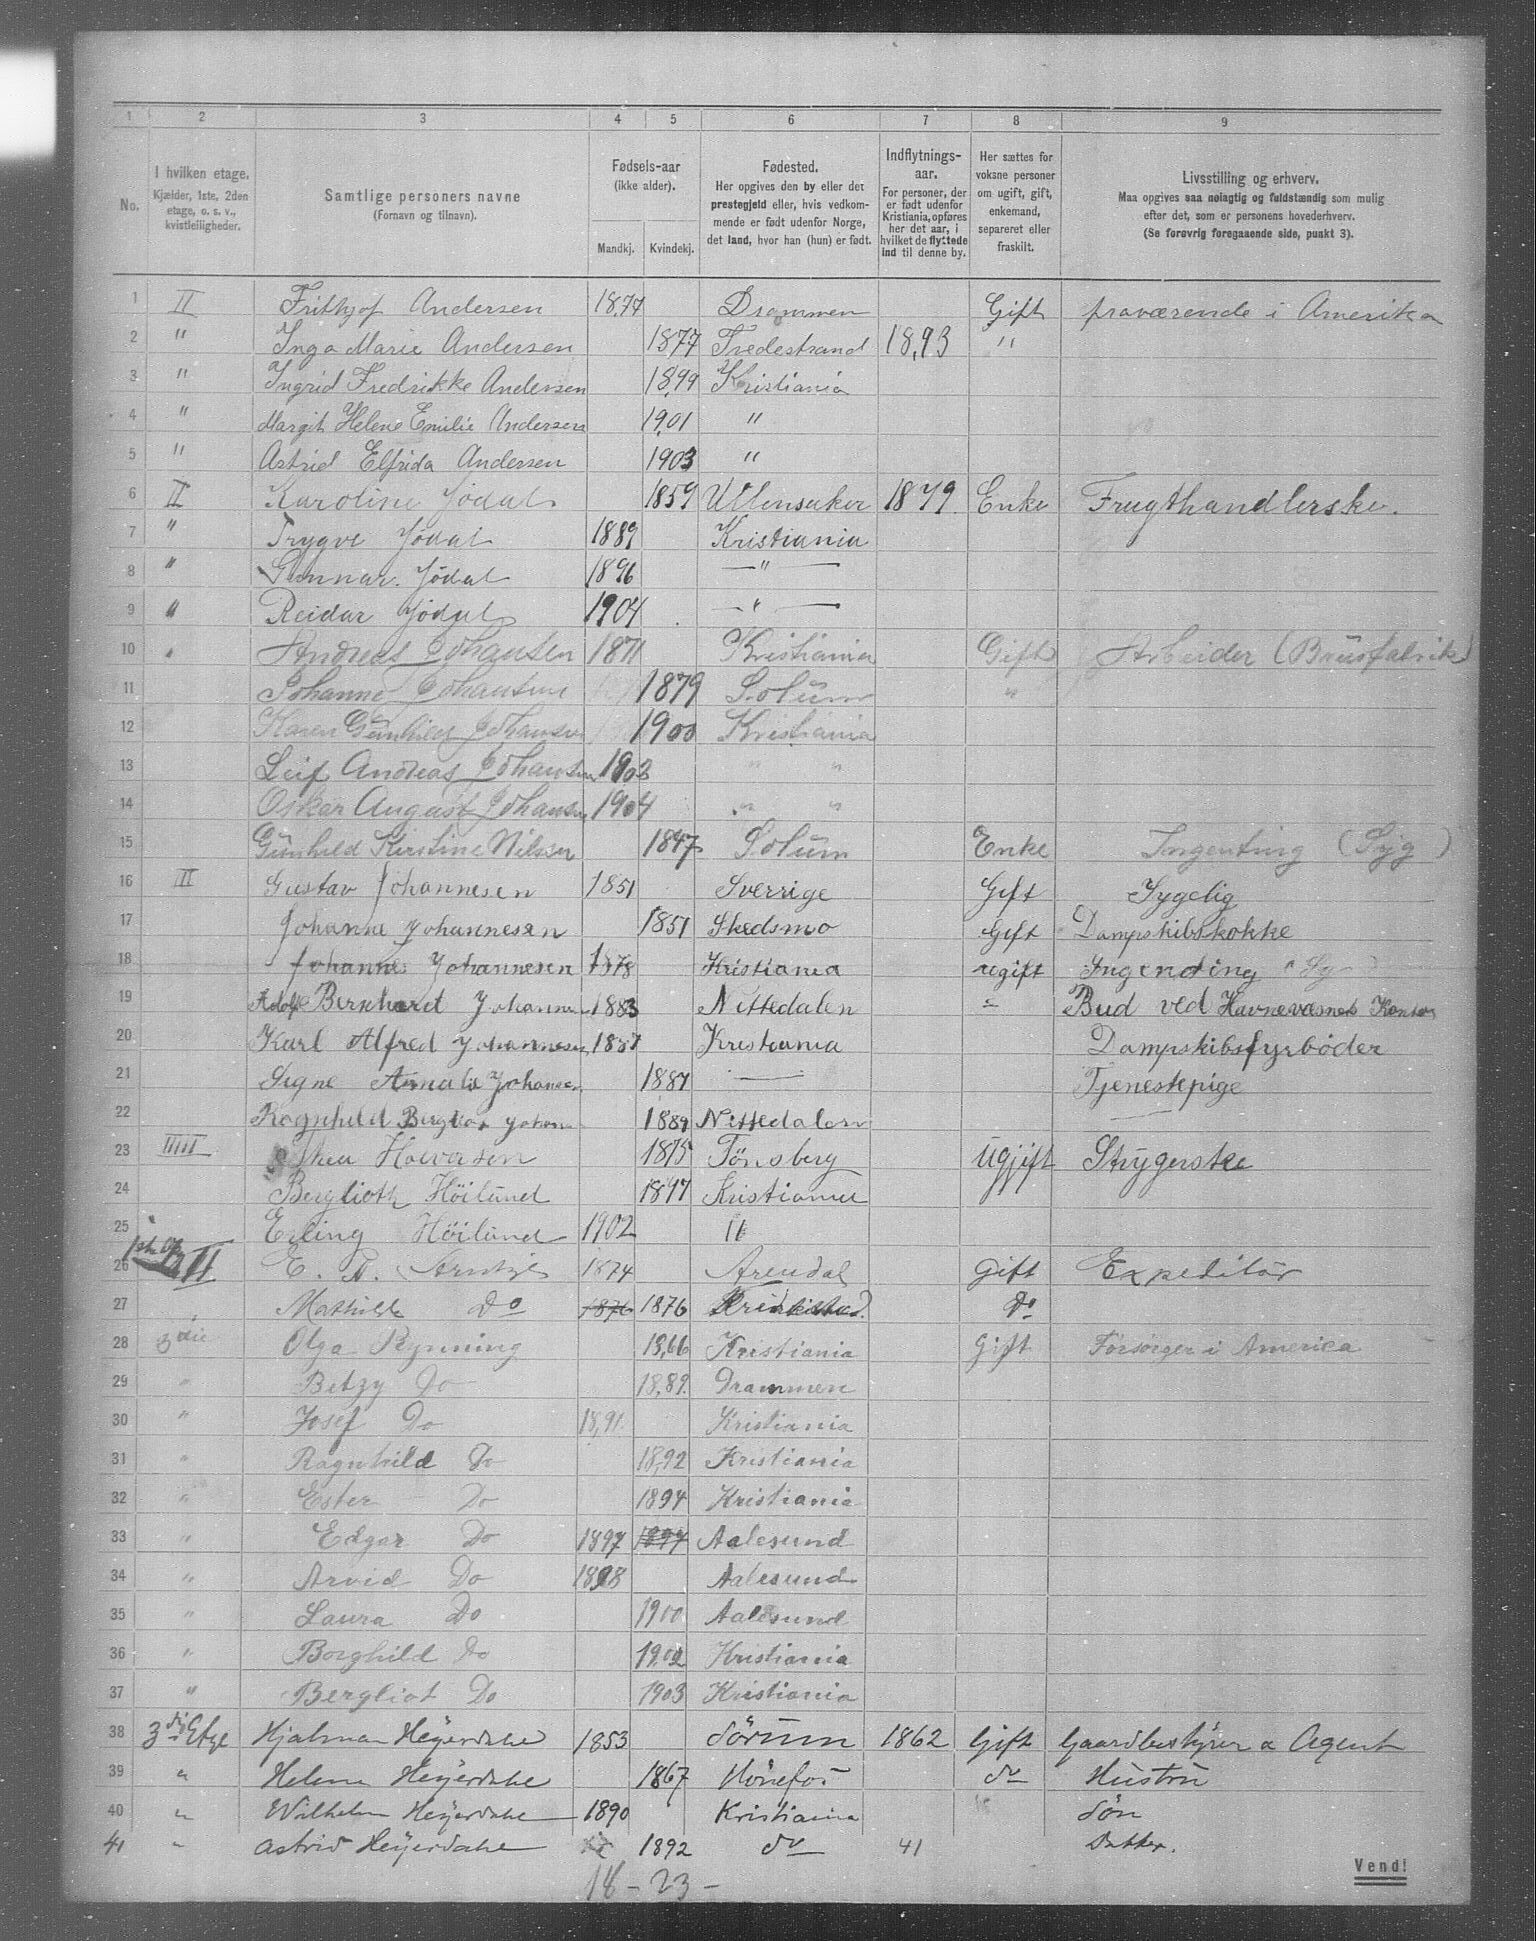 1 2 3 4 5 6 7 8 9
No.
I hvilken etage.
Kjælder, 1ste, 2den
etage, o. s. v.,
kvistleiligheder.
Samtlige personers navne
(Fornavn og tilnavn).
Fødsels-aar
(ikke alder).
Mandkj. Kvindekj.
Fødested.
Her opgives den by eller det
prestegjeld eller, hvis vedkom-
mende er født udenfor Norge,
det land, hvor han (hun) er født.
Indflytnings-
aar.
For personer, der
er født udenfor
Kristiania, opføres
her det aar, i
hvilket de flyttede
ind til denne by.
Her sættes for
voksne personer
om ugift, gift,
enkemand,
separeret eller
fraskilt.
Livsstilling og erhverv.
Maa opgives saa nøiagtig og fuldstændig som mulig
efter det, som er personens hovederhverv.
(Se forøvrig foregaaende side, punkt 3).
1 II Frithjof Andersen 1877 Drammen Gift fraværende i Amerika
2 " Inga Marie Andersen 1877 Tredestrand 1893 "
3 " Ingrid Fredrikke Andersen 1899 Kristiania
4 " Margit Helene Emilie Andersen 1901 "
5 " Astrid Elfrida Andersen 1903 "
6 II Karoline Jödal 1859 Ullensaker 1879 Enke Frugthandlerske.
7 " Trygve Jödal 1889 Kristiania
8 " Gunnar Jödal 1896 — " —
9 " Reidar Jödal 1904 — " —
10 " Andreas Johansen 1871 Kristiania Gift Arbeider (Brusfabrik)
11 Johanne Johansen 1879 Solum "
12 Karen Gunhild Johansen 1900 Kristiania
13 Leif Andreas Johansen 1902 " "
14 Oskar August Johansen 1904 " "
15 Gunhild Kirstine Nilsen 1847 Solum Enke Ingenting (Syg)
16 II Gustav Johannesen 1851 Sverrige Gift Sygelig
17 Johanne Johannesen 1851 Skedsmo Gift Dampskibskokke
18 Johannes Johannesen 1878 Kristiania ugift Ingending "Sy
19 Adolf Bernhard Johannes 1883 Nittedalen " Bud ved Havnevæsnets Kontor
20 Karl Alfred Johannesen 1887 Kristiania Dampskibsfyrböder
21 Signe Amala Johansen 1887 — Tjenestepige
22 Ragnhild Bergliot Johan 1889 Nittedalen —
23 IIIII Thea Halvorsen 1875 Tönsberg Ugift Strygerske
24 Berglioth Höilund 1897 Kristiania
25 Erling Höilund 1902 "
1ste Op
26 II E. A. Arntzen 1874 Arendal Gift Expeditör
27 " Mathilde Do 1876 1876 Kristiania Do
28 3die Olga Rynning 1866 Kristiania Gift Försörger i America
29 " Betzy Do 1889 Drammen
30 " Josef Do 1891 Kristiania
31 " Ragnhild Do 1892 Kristiania
32 " Ester Do 1894 Kristiania
33 " Edgar Do 1897 1897 Aalesund
34 " Arvid Do 1898 Aalesund
35 " Laura Do 1900 Aalesund
36 " Borghild Do 1902 Kristiania
37 " Bergliot Do 1903 Kristiania
38 3die Etge Hjalmar Heyerdahl 1853 Sörum 1862 Gift Gaardbestyrer & Agent
39 " Helene Heyerdahl 1867 Hönefos do Hustru
40 " Wilhelm Heyerdahl 1890 Kristiania Sön
41 " Astrid Heyerdahl 1892 do 41 Datter.
18 - 23 -
Vend!